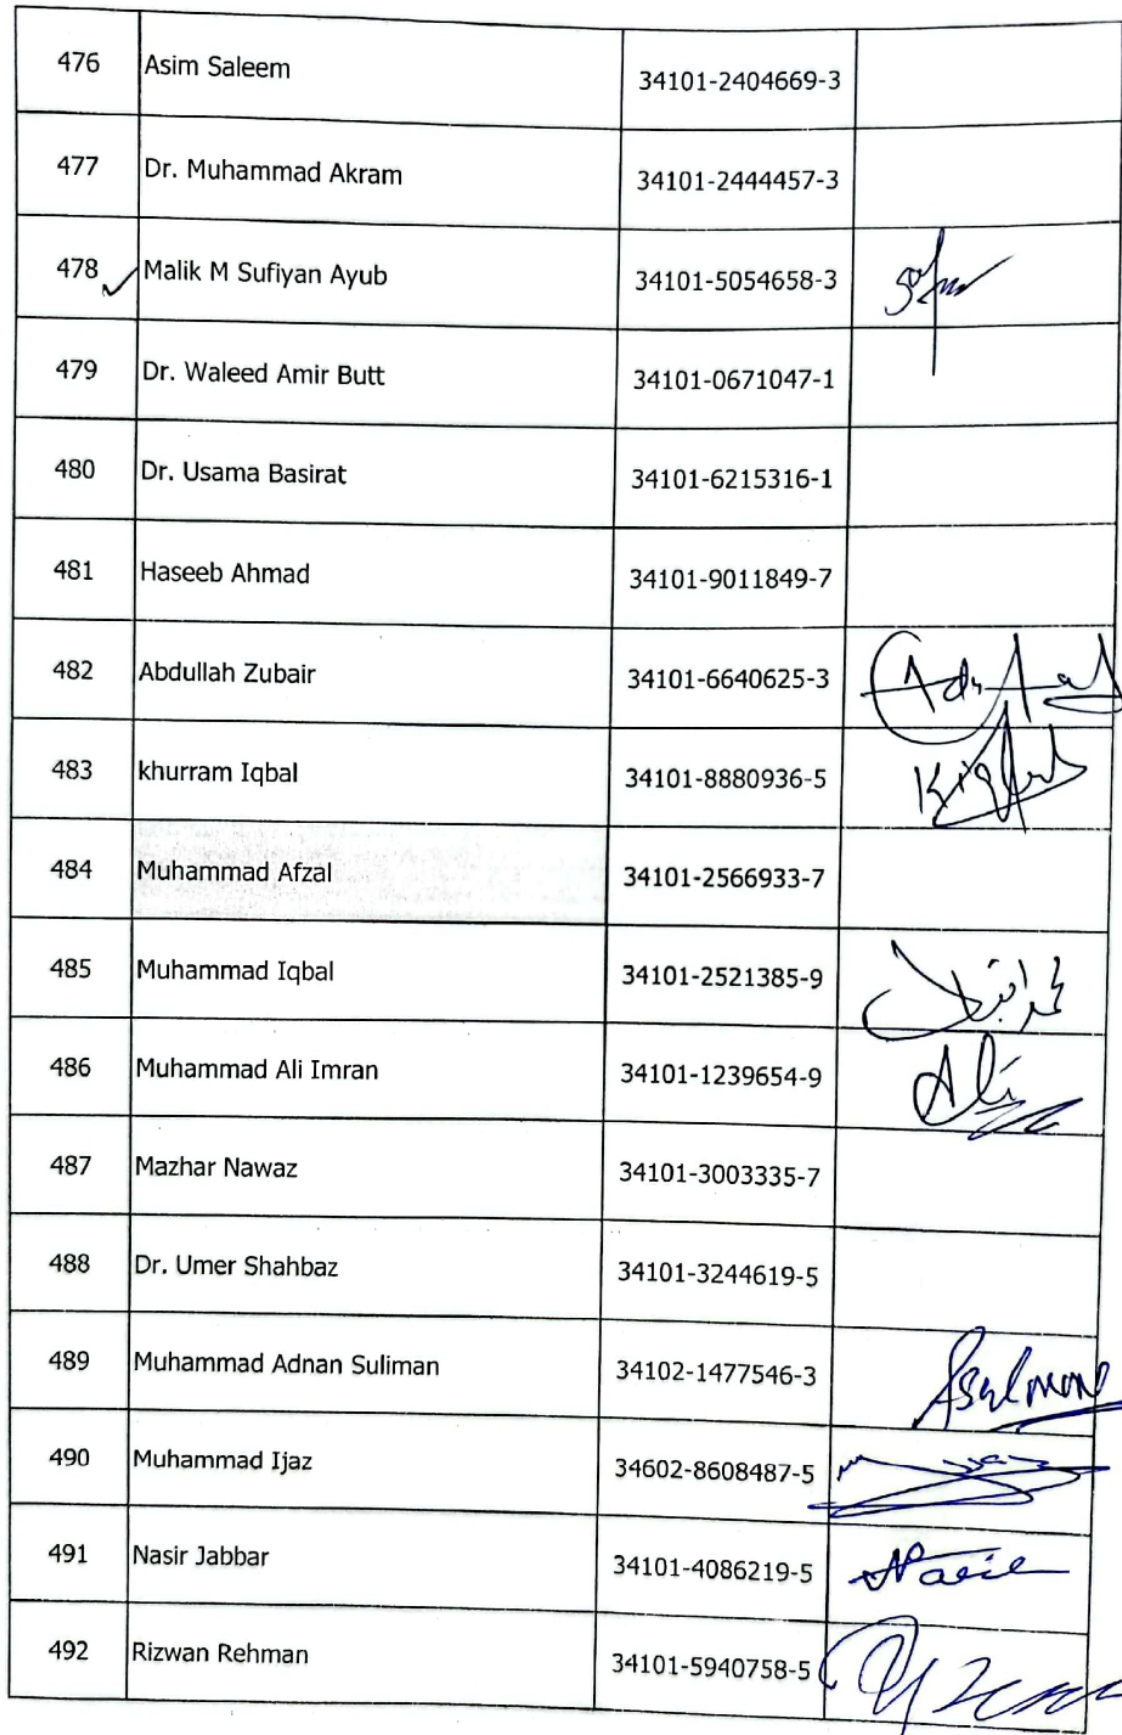 476 Asim Saleem 34101-2404669-3
477 Dr. Muhammad Akram 34101-2444457-3
478 Malik M Sufiyan Ayub 34101-5054658-3
479 Dr. Waleed Amir Butt 34101-0671047-1
480 Dr. Usama Basirat 34101-6215316-1
481 Haseeb Ahmad 34101-9011849-7
482 Abdullah Zubair 34101-6640625-3
483 khurram Iqbal 34101-8880936-5
484 Muhammad Afzal 34101-2566933-7
485 Muhammad Iqbal 34101-2521385-9 محمد اقبال
486 Muhammad Ali Imran 34101-1239654-9 Ali
487 Mazhar Nawaz 34101-3003335-7
488 Dr. Umer Shahbaz 34101-3244619-5
489 Muhammad Adnan Suliman 34102-1477546-3
490 Muhammad Ijaz 34602-8608487-5
491 Nasir Jabbar 34101-4086219-5
492 Rizwan Rehman 34101-5940758-5